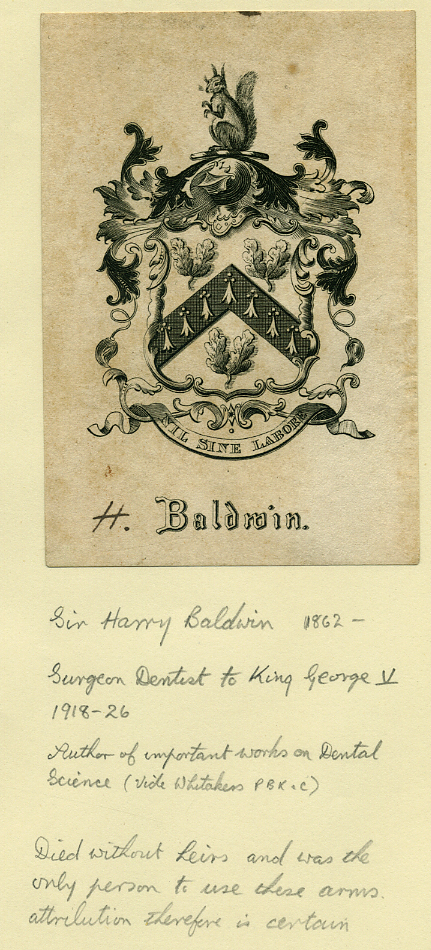 NIL SINE LABORE
H. Baldwin.
Sir Harry Baldwin 1862 –
Surgeon Dentist to King George V
1918-26
Author of important works on Dental
Science (Vide Whitakers P B K & C)
Died without heirs and was the
only person to use these arms.
attribution therefore is certain